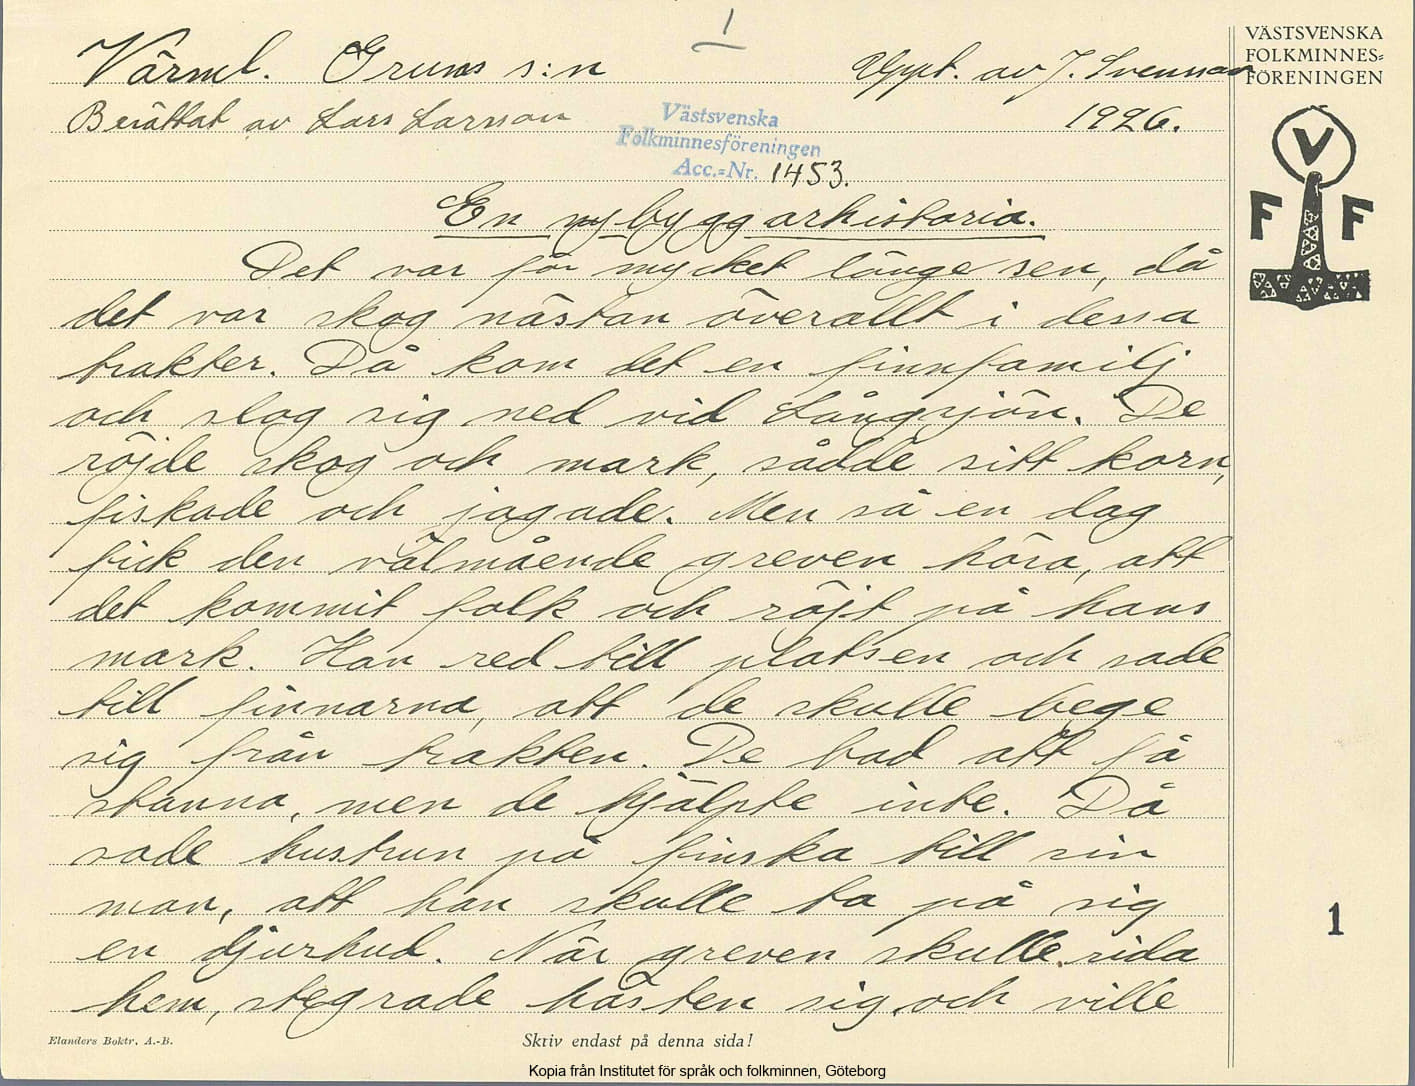 1
Värml. Grums s:n
Uppt. av J. Svensson
VÄSTSVENSKA
FOLKMINNES=
FÖRENINGEN
Berättat av Lars Larsson
1926.
Västsvenska
Folkminnesföreningen
Acc.=Nr. 1453.
V
F F
En nybyggarhistoria.
Det var för mycket länge sen, då
det var skog nästan överallt i dessa
trakter. Då kom det en finnfamilj
och slog sig ned vid Långsjön. De
röjde skog och mark, sådde sitt korn,
fiskade och jagade. Men så en dag
fick den välmående greven höra, att
det kommit folk och röjt på hans
mark. Han red till platsen och sade
till finnarna, att de skulle bege
sig från trakten. De bad att få
stanna, men de hjälpte inte. Då
sade hustrun på finska till sin
man, att han skulle ta på sig
en djurhud. När greven skulle rida
hem, stegrade hästen sig och ville
1
Elanders Boktr. A.-B.
Skriv endast på denna sida!
Kopia från Institutet för språk och folkminnen, Göteborg